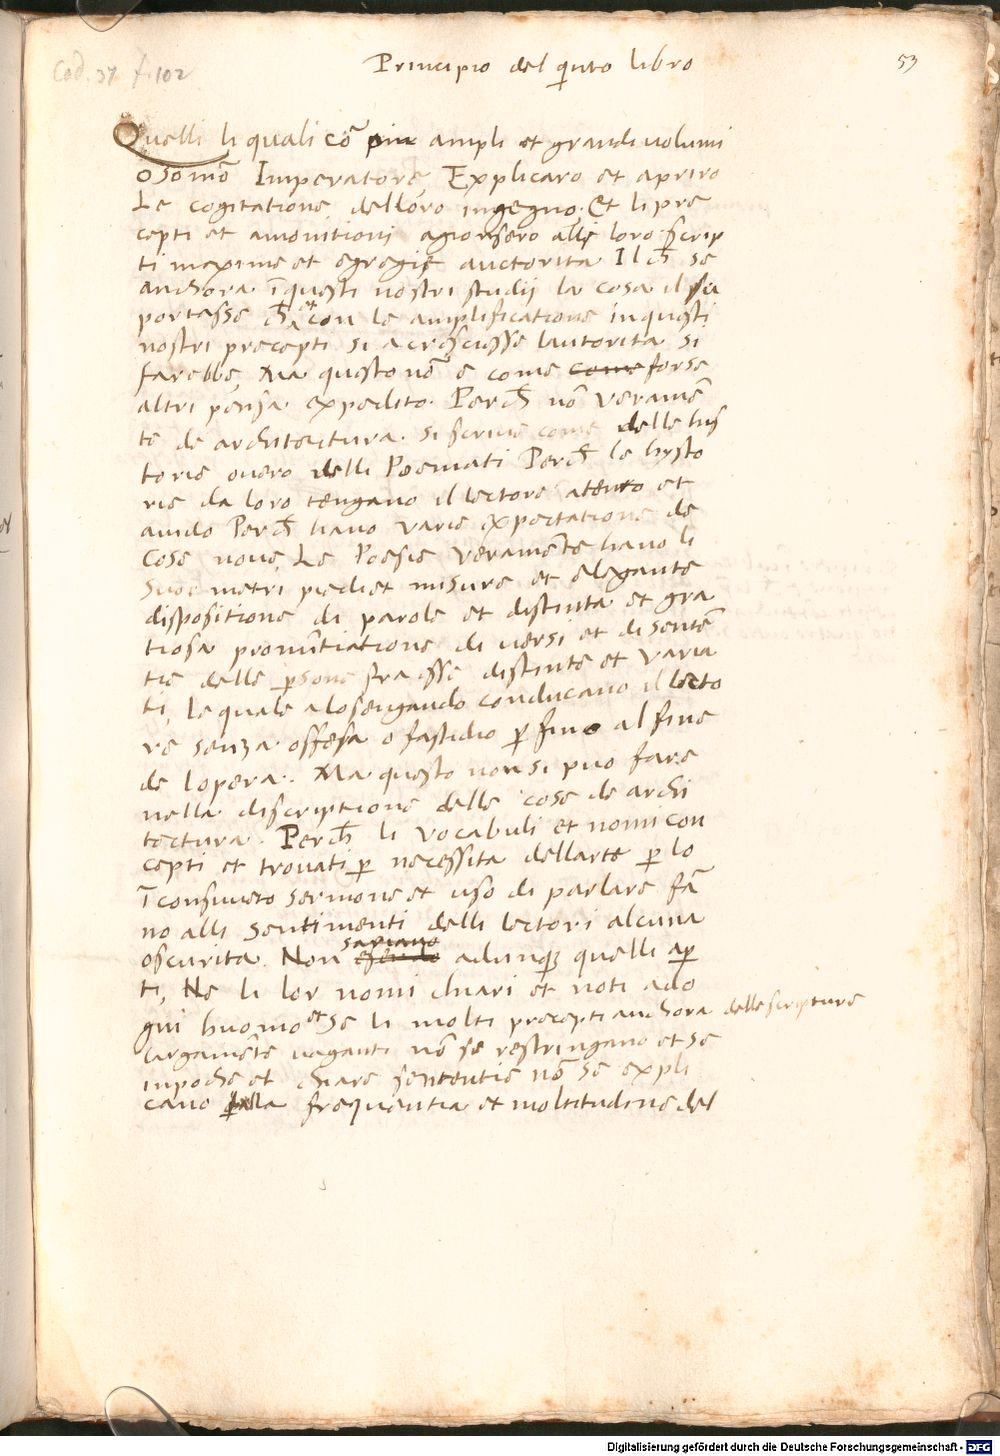 Cod. 37 f. 102
Principio del q̄nto libro
53
Quelli li quali cō piu ampli et grandi volumi
o somō Imperatore, Explicaro et apriro
Le cogitatione delloro ingegno. Et li pre
cepti et amonitioni agionsero alle loro scrip
ti maxime et egregie auctorita Il ch̄ se
anchora ī questi nostri studij la cosa il su
portasse ch̄ et con le amplificatione in questi
nostri precepti si acrescesse lautorita si
farebbe, Ma questo nō e come come forse
altri pensa expedito. Perch̄ nō veramē
te de architectura. si scrive come delle his
torie overo delli Poemati Perch̄ le hysto
rie da loro tengano il lectore atento et
auido Perch̄ hano varie expectatione de
cose nove, Le Poesie veramēte hano li
suoi metri piedi et misure et elegante
dispositione di parole et distinta et gra
tiosa pronuntiatione di versi et di sentē
tie delle p̄sone fra esse distinte et varia
ti, Le quale alosengando conducano il lecto
re senza offesa o fastidio p̄ fino al fine
de lopera. Ma questo non si puo fare
nella discriptione delle cose de archi
tectura. Perch̄ li vocabuli et nomi con
cepti et trovati p̄ necessita dellarte p̄ lo
ī consueto sermone et uso di parlare fā
no alli sentimenti delli lectori alcuna
oscurita. Non sapiano essendo adunq̄ quelli ap̄
ti, Ne li lor nomi chiari et noti ado
gni huomo et se li molti precepti anchora delle scripture
largamēte vaganti nō se restringano et se
in poche et chiare sententie nō se expli
cano p̄ la frequentia et moltitudine del
Digitalisierung gefördert durch die Deutsche Forschungsgemeinschaft - DFG